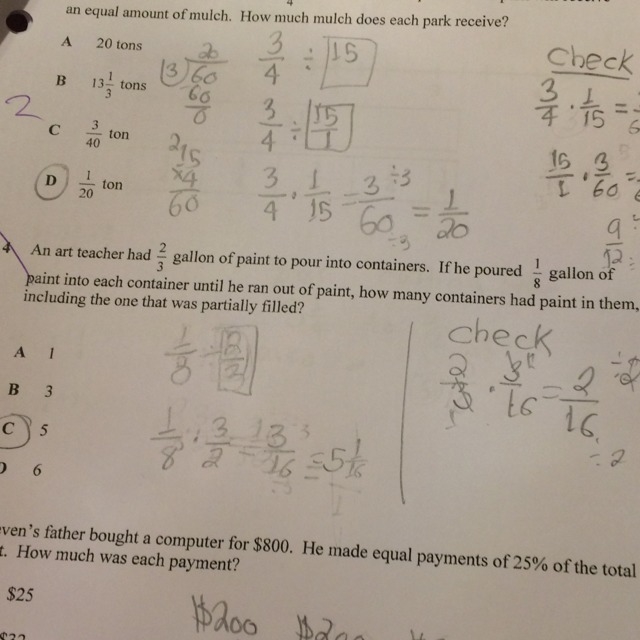 an equal amount of mulch. How much mulch does each park receive?
A 20 tons
B 13 1/3 tons
C 3/40 ton
D 1/20 ton
2
20
13)60
60
0
15
x4
60
3/4 ÷ 15
3/4 ÷ 15/1
3/4 · 1/15 = 3/60 ÷3 ÷3 = 1/20
Check
3/4 · 1/15 =
15/1 · 3/60 =
9/12
4 An art teacher had 2/3 gallon of paint to pour into containers. If he poured 1/8 gallon of
paint into each container until he ran out of paint, how many containers had paint in them,
including the one that was partially filled?
A 1
B 3
C 5
D 6
1/8
1/8 · 3/2 = 3/16 = 5 1/16
check
2/3 · 3/16 = 2/16 ÷2 ÷2
even's father bought a computer for $800. He made equal payments of 25% of the total
t. How much was each payment?
$25
$200 $200